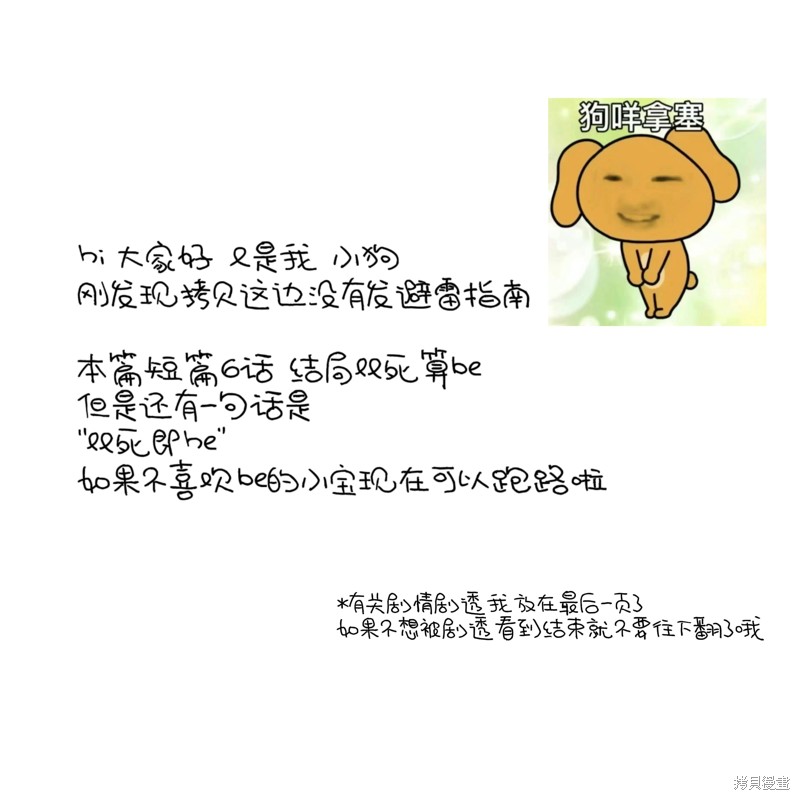 狗咩拿塞
hi 大家好 又是我 小狗
刚发现拷贝这边没有发避雷指南
本篇短篇6话 结局双死算be
但是还有一句话是
"双死即he"
如果不喜欢be的小宝现在可以跑路啦
*有关剧情剧透我放在最后一页了
如果不想被剧透看到结束就不要往下翻了哦
拷貝漫畫